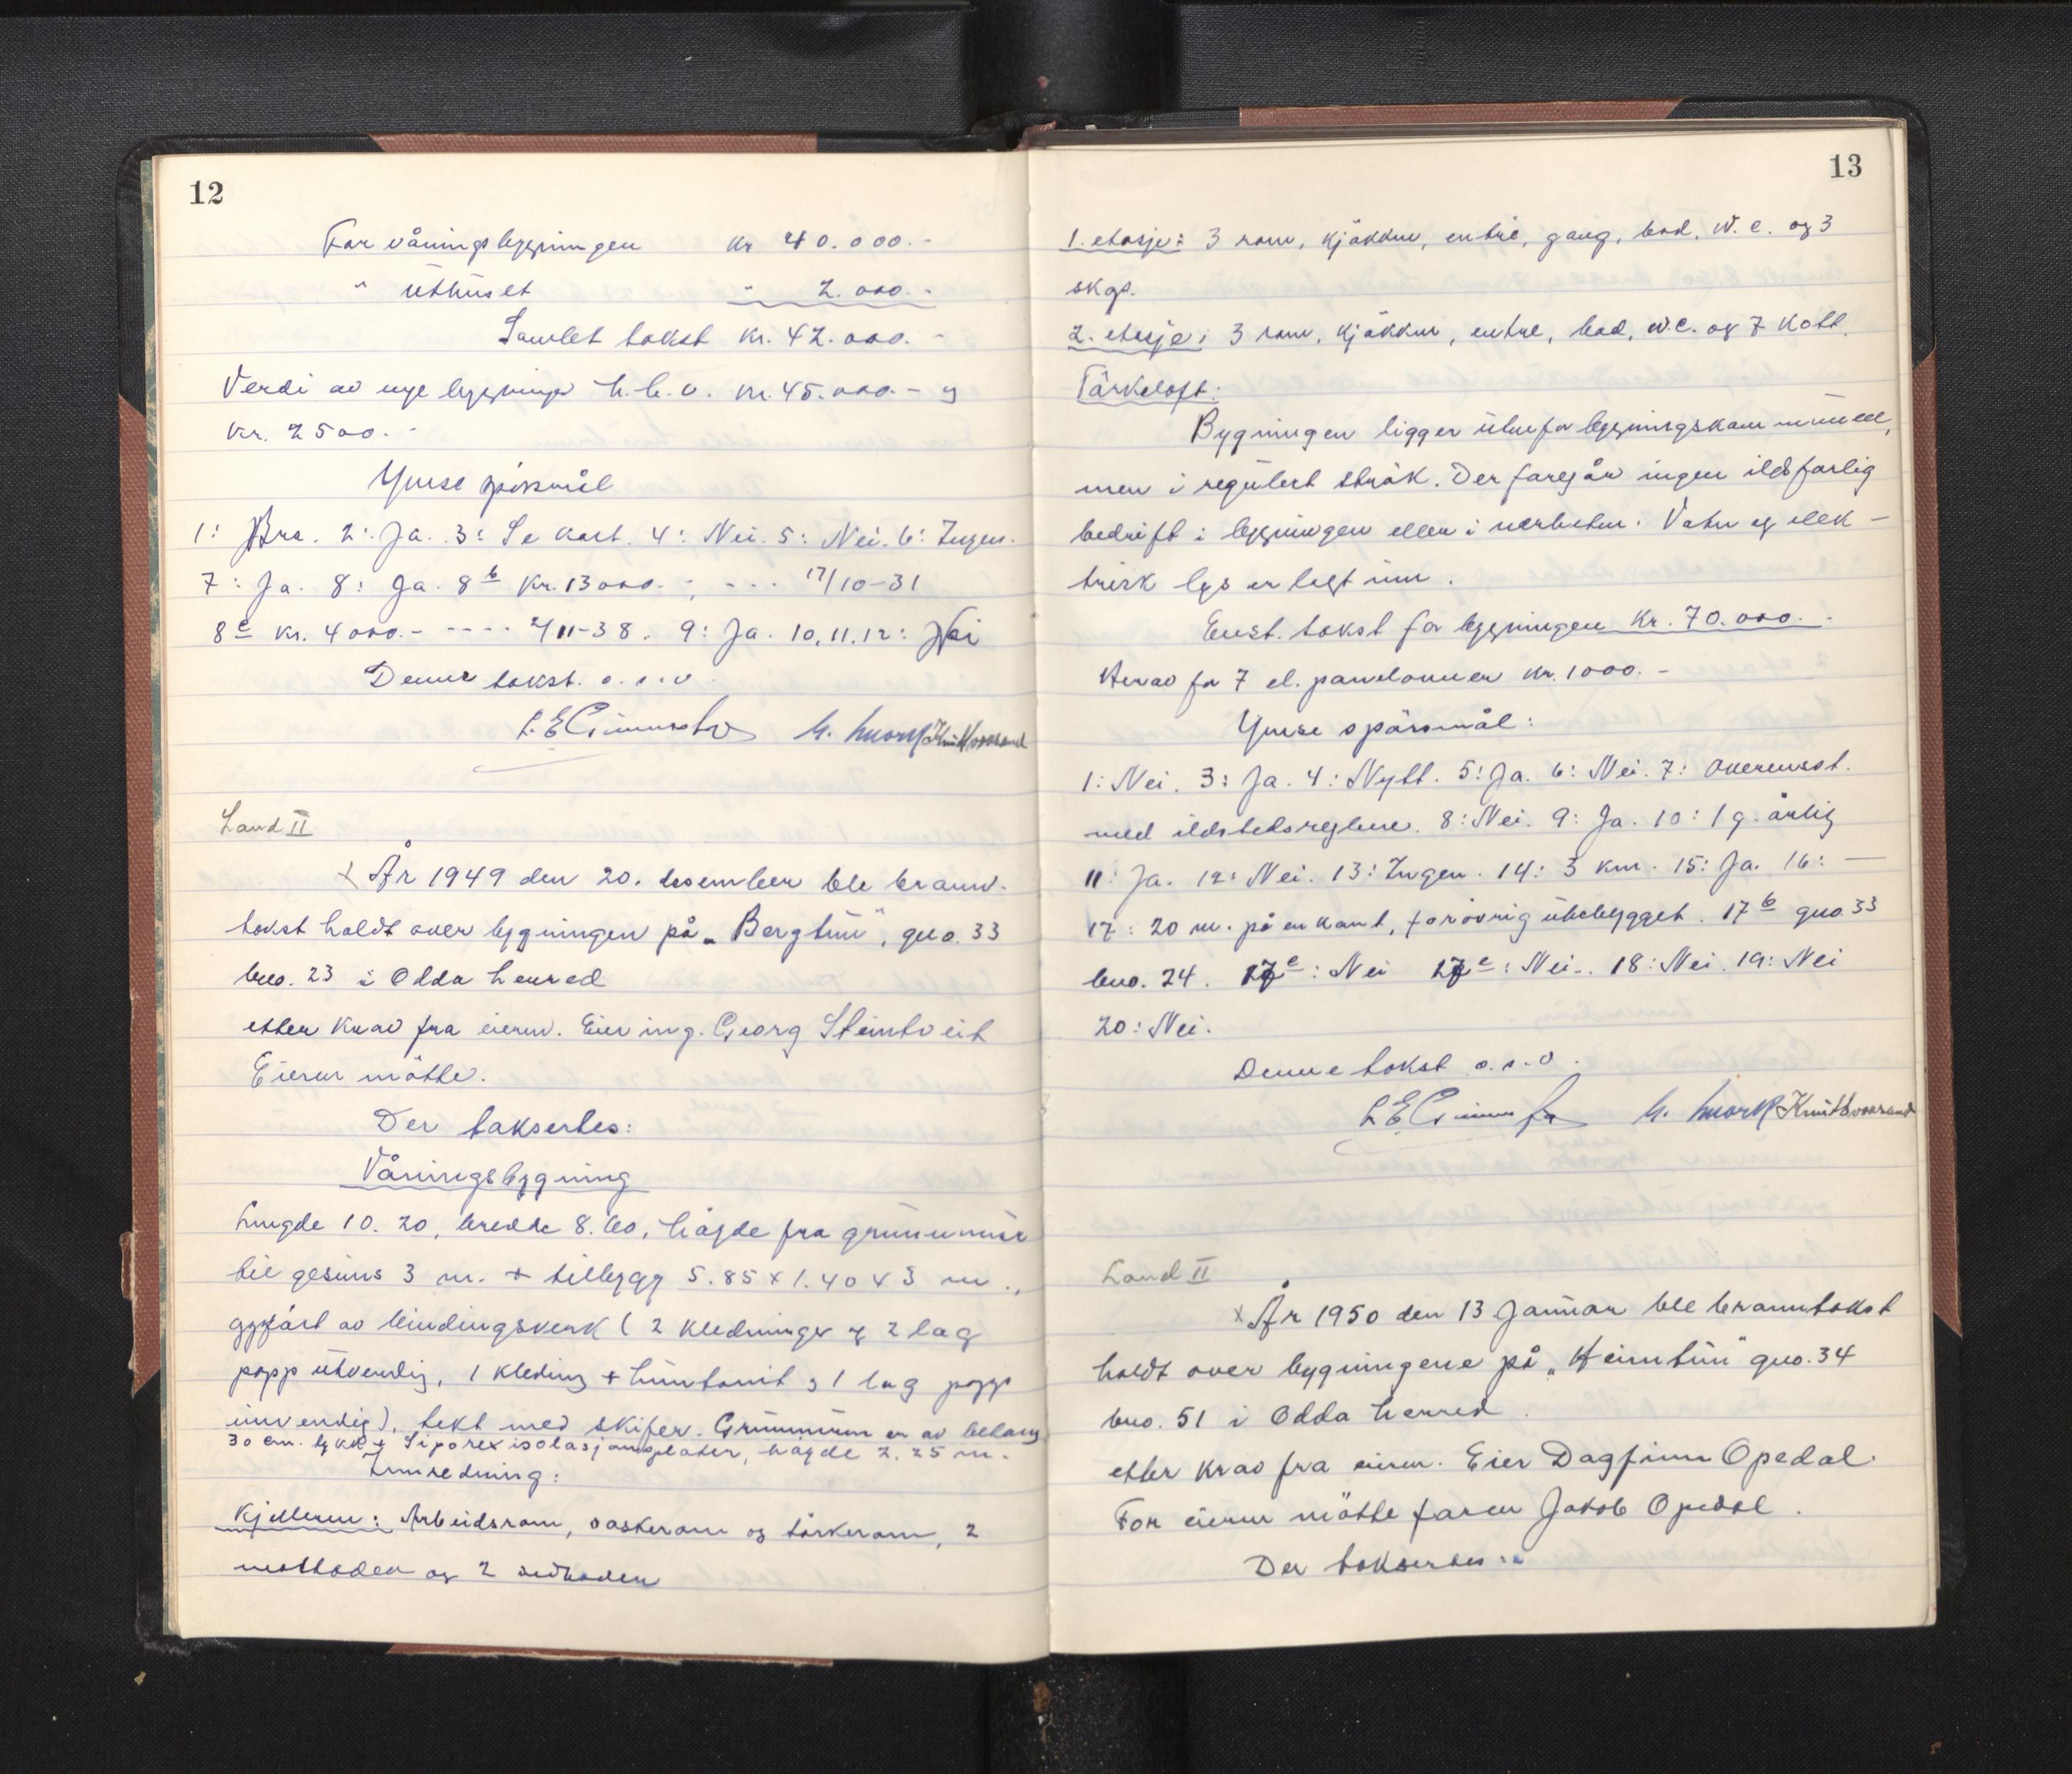 12
For våningsbygningen kr 40.000.-
" uthuset " 2.000.-
Samlet takst kr. 42.000.-
Verdi av nye bygninger h.h.v. kr. 45.000.- og
kr. 2500.-
Ymse spörsmål
1: Bra. 2: Ja. 3: Se kart. 4: Nei. 5: Nei. 6: Ingen.
7: Ja. 8: Ja. 8b kr. 13000.- , - - - 17/10-31
8c kr. 4000.- - - - - 2/11-38. 9: Ja. 10, 11, 12: Nei
Denne takst. o.s.v.
Land II
x År 1949 den 20. desember ble brann-
takst holdt over bygningen på „Bergtun", gno. 33
bno. 23 i Odda herred
etter krav fra eieren. Eier ing. Georg Steintveit
Eieren mötte.
Der takseres:
Våningsbygning
Lengde 10.20, bredde 8.60, högde fra grunnmur
til gesims 3 m. + tilbygg 5.85 x 1.40 x 3 m.,
oppfört av bindingsverk ( 2 kledninger og 2 lag
papp utvendig, 1 kledning + huntonit og 1 lag papp
innvendig), tekt med skifer. Grunnmuren er av betong
30 cm. tykk + Siporex isolasjonsplater, högde 2.25 m.
Innredning:
Kjelleren: Arbeidsrom, vaskerom og törkerom, 2
matboder og 2 vedboder
13
1. etasje: 3 rom, kjökken, entré, gang, bad, W.C. og 3
skap.
2. etasje: 3 rom, kjökken, entre, bad, W.C. og 7 kott.
Törkeloft.
Bygningen ligger utenfor bygningskommunen,
men i regulert strök. Der foregår ingen ildsfarlig
bedrift i bygningen eller i nærheten. Vatn og elek-
trisk lys er lagt inn.
Enst. takst for bygningen kr. 70.000.-
Herav for 7 el. panelovner kr. 1000.-
Ymse spörsmål:
1: Nei. 3: Ja. 4: Nytt. 5: Ja. 6: Nei. 7: Overensst.
med ildstedsreglene. 8: Nei. 9: Ja. 10: 1 g. årlig
11: Ja. 12: Nei. 13: Ingen. 14: 3 km. 15: Ja. 16: —
17: 20 m. på en kant, forövrig utebygget. 17b gno. 33
bno. 24. 17c: Nei 17e: Nei. 18: Nei. 19: Nei
20: Nei.
Denne takst o.s.v.
Land II
x År 1950 den 13 Januar ble branntakst
holdt over bygningene på „Heimtun" gno. 34
bno. 51 i Odda herred.
etter krav fra eieren. Eier Dagfinn Opedal.
For eieren mötte faren Jakob Opedal.
Der takseres: